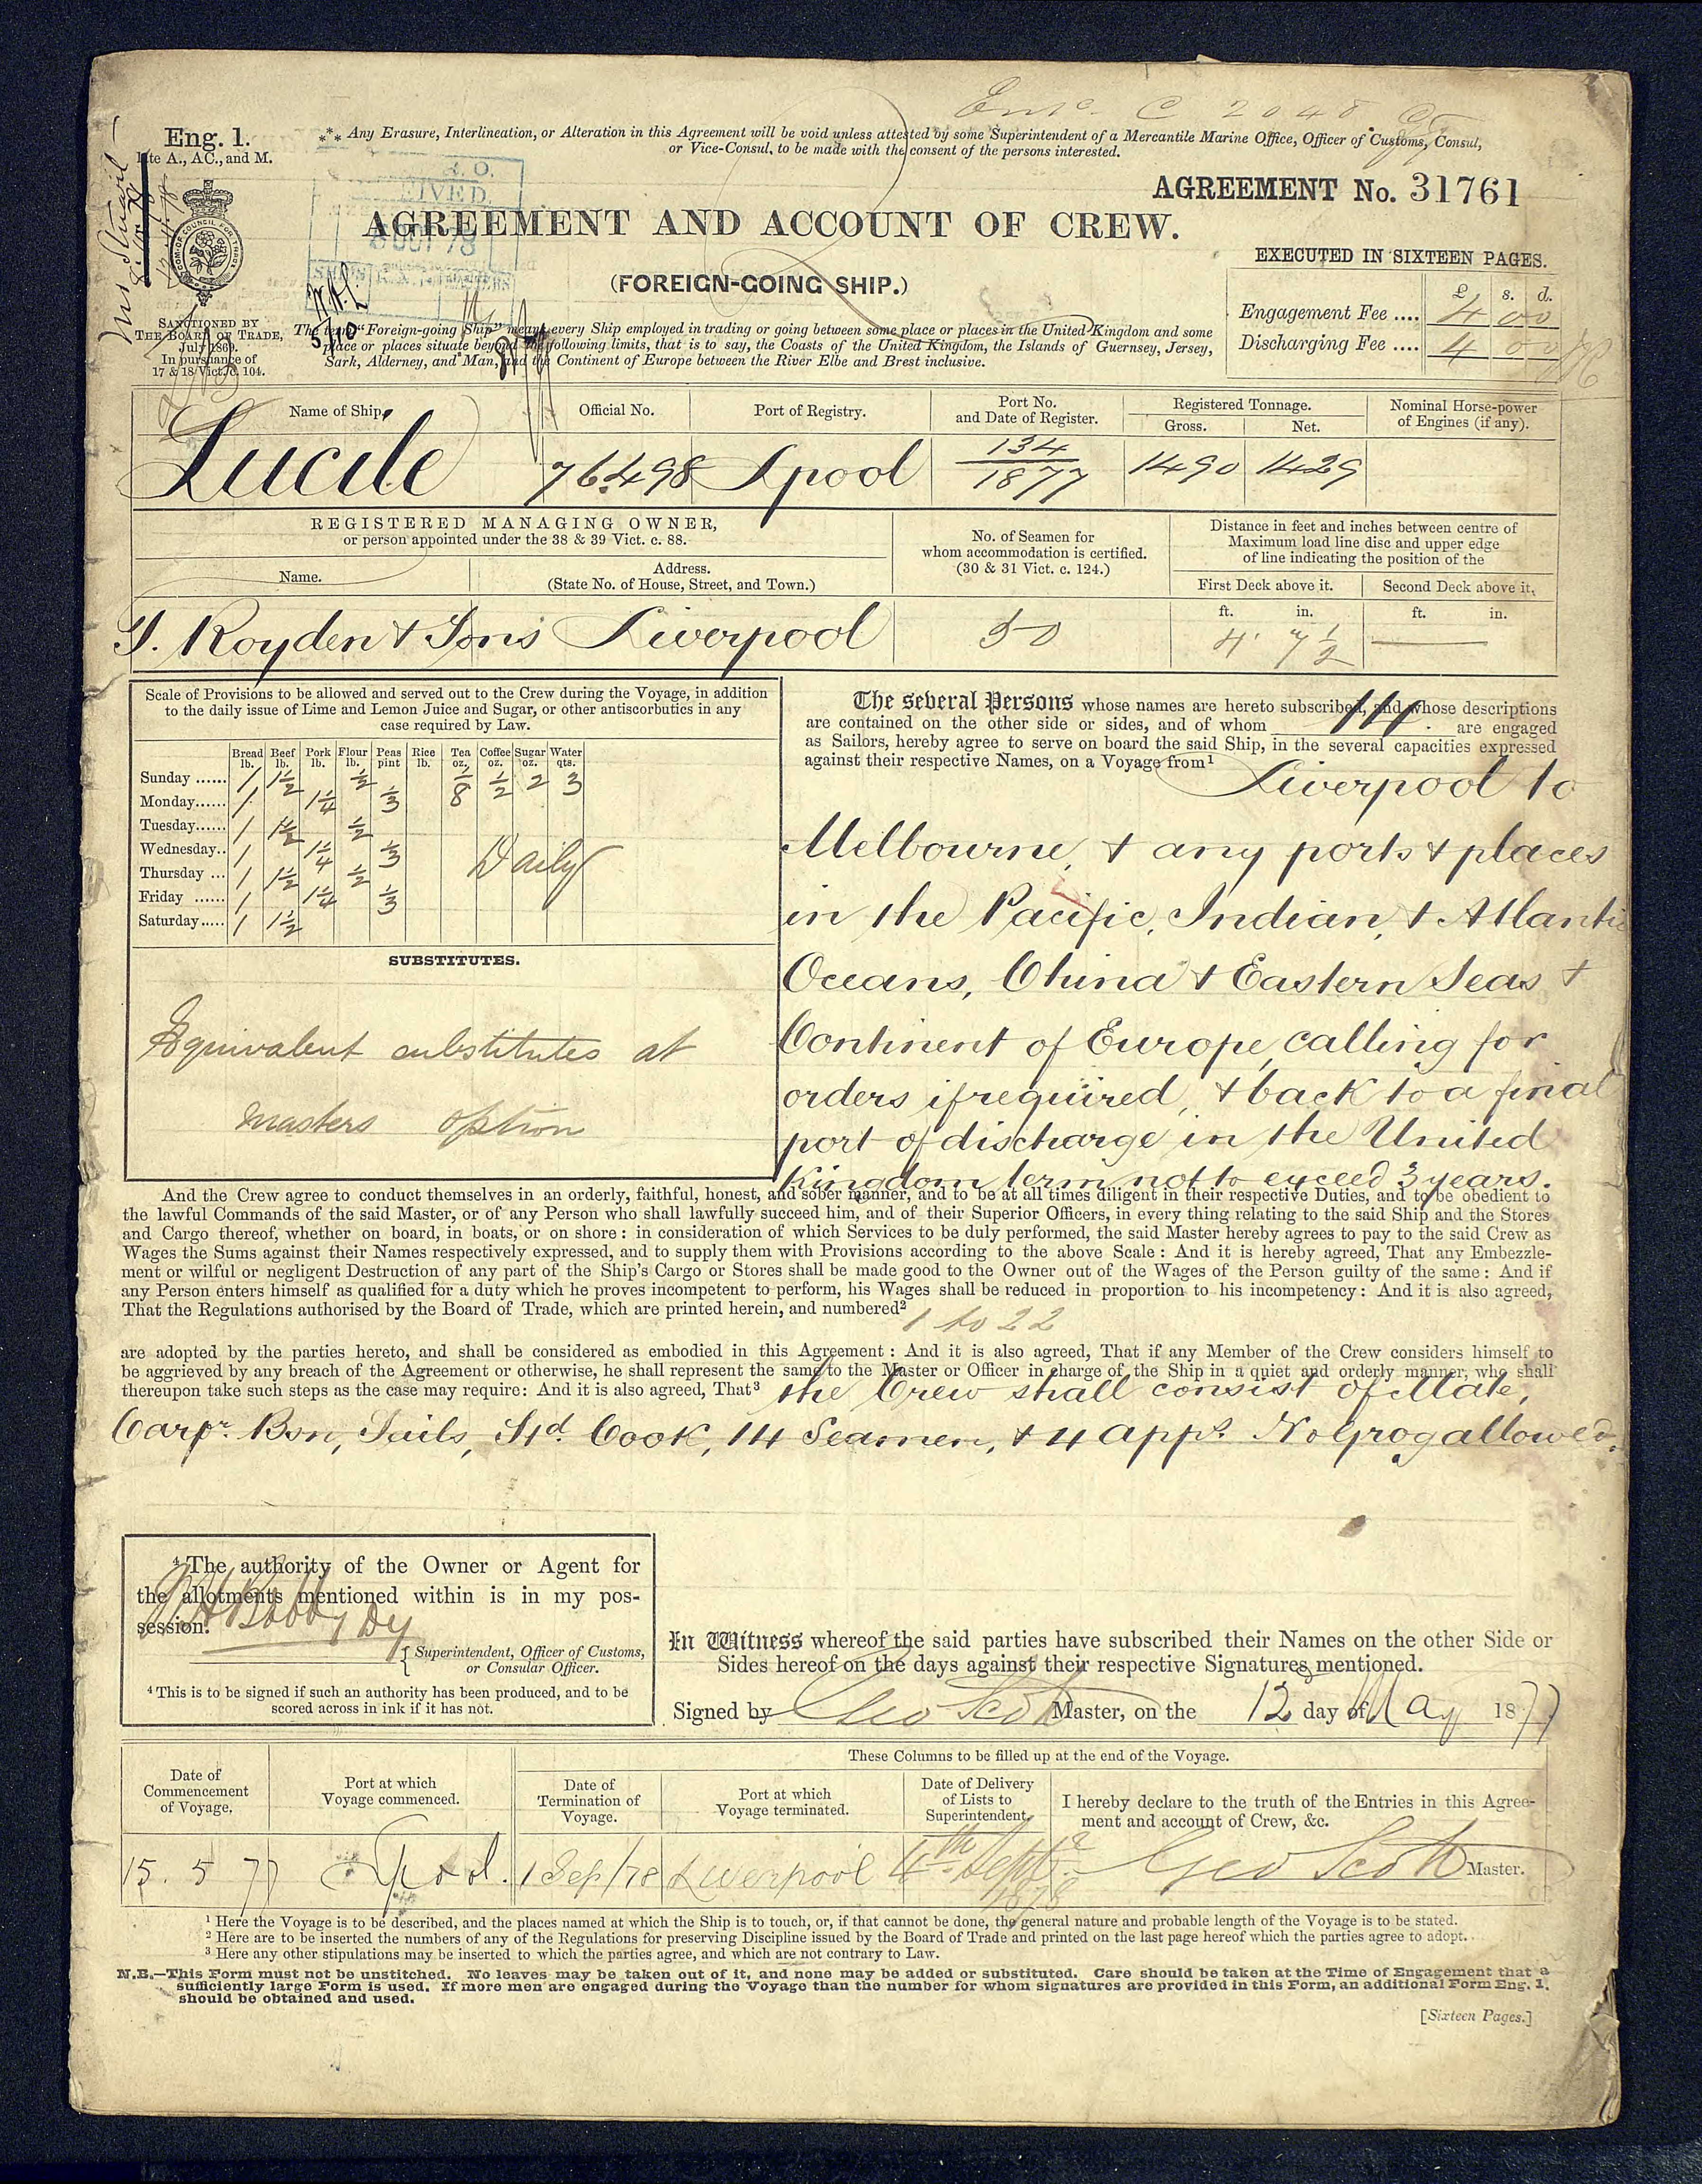 Eng. 1.
late A., AC., and M.
*** Any Erasure, Interlineation, or Alteration in this Agreement will be void unless attested by some Superintendent of a Mercantile Marine Office, Officer of Customs, Consul,
or Vice-Consul, to be made with the consent of the persons interested.
AGREEMENT No. 31761
AGREEMENT AND ACCOUNT OF CREW.
(FOREIGN-GOING SHIP.)
EXECUTED IN SIXTEEN PAGES.
£ s. d.
Engagement Fee .... 4 0 0
Discharging Fee .... 4 0 0
SANCTIONED BY
THE BOARD OF TRADE,
July 1869.
In pursuance of
17 & 18 Vict. c. 104.
The term "Foreign-going Ship" means every Ship employed in trading or going between some place or places in the United Kingdom and some
place or places situate beyond the following limits, that is to say, the Coasts of the United Kingdom, the Islands of Guernsey, Jersey,
Sark, Alderney, and Man, and the Continent of Europe between the River Elbe and Brest inclusive.
Name of Ship. Official No. Port of Registry. Port No. and Date of Register. Registered Tonnage. Gross. Net. Nominal Horse-power of Engines (if any).
Lucile 76498 Lpool 134/1877 1490 1429
REGISTERED MANAGING OWNER,
or person appointed under the 38 & 39 Vict. c. 88.
Name. Address. (State No. of House, Street, and Town.)
No. of Seamen for whom accommodation is certified. (30 & 31 Vict. c. 124.)
Distance in feet and inches between centre of
Maximum load line disc and upper edge
of line indicating the position of the
First Deck above it. Second Deck above it.
ft. in. ft. in.
T. Royden & Sons Liverpool 30 4' 7½
Scale of Provisions to be allowed and served out to the Crew during the Voyage, in addition
to the daily issue of Lime and Lemon Juice and Sugar, or other antiscorbutics in any
case required by Law.
Bread lb. Beef lb. Pork lb. Flour lb. Peas pint Rice lb. Tea oz. Coffee oz. Sugar oz. Water qts.
Sunday ...... 1 1½ ½ ⅛ ½ 2 3
Monday...... 1 1¼ ⅓
Tuesday...... 1 1½ ½
Wednesday.. 1 1¼ ⅓ Daily
Thursday ... 1 1½ ½
Friday ...... 1 1¼ ⅓
Saturday..... 1 1½
SUBSTITUTES.
Equivalent substitutes at
masters option
The several Persons whose names are hereto subscribed, and whose descriptions
are contained on the other side or sides, and of whom 14 are engaged
as Sailors, hereby agree to serve on board the said Ship, in the several capacities expressed
against their respective Names, on a Voyage from¹ Liverpool to
Melbourne, & any ports & places
in the Pacific, Indian, & Atlantic
Oceans, China & Eastern Seas &
Continent of Europe, calling for
orders if required, & back to a final
port of discharge in the United
Kingdom term not to exceed 3 years.
And the Crew agree to conduct themselves in an orderly, faithful, honest, and sober manner, and to be at all times diligent in their respective Duties, and to be obedient to
the lawful Commands of the said Master, or of any Person who shall lawfully succeed him, and of their Superior Officers, in every thing relating to the said Ship and the Stores
and Cargo thereof, whether on board, in boats, or on shore: in consideration of which Services to be duly performed, the said Master hereby agrees to pay to the said Crew as
Wages the Sums against their Names respectively expressed, and to supply them with Provisions according to the above Scale: And it is hereby agreed, That any Embezzle-
ment or wilful or negligent Destruction of any part of the Ship's Cargo or Stores shall be made good to the Owner out of the Wages of the Person guilty of the same: And if
any Person enters himself as qualified for a duty which he proves incompetent to perform, his Wages shall be reduced in proportion to his incompetency: And it is also agreed,
That the Regulations authorised by the Board of Trade, which are printed herein, and numbered² 1 to 22
are adopted by the parties hereto, and shall be considered as embodied in this Agreement: And it is also agreed, That if any Member of the Crew considers himself to
be aggrieved by any breach of the Agreement or otherwise, he shall represent the same to the Master or Officer in charge of the Ship in a quiet and orderly manner, who shall
thereupon take such steps as the case may require: And it is also agreed, That³ the Crew shall consist of Mate,
Carpr. Bsn, Sails, Std. Cook, 14 Seamen, & 4 apps. No Grog allowed.
⁴ The authority of the Owner or Agent for
the allotments mentioned within is in my pos-
session.
Superintendent, Officer of Customs,
or Consular Officer.
⁴ This is to be signed if such an authority has been produced, and to be
scored across in ink if it has not.
In Witness whereof the said parties have subscribed their Names on the other Side or
Sides hereof on the days against their respective Signatures mentioned.
Signed by Geo Scott Master, on the 12 day of May 1877
These Columns to be filled up at the end of the Voyage.
Date of Commencement of Voyage. Port at which Voyage commenced. Date of Termination of Voyage. Port at which Voyage terminated. Date of Delivery of Lists to Superintendent. I hereby declare to the truth of the Entries in this Agree-
ment and account of Crew, &c.
15. 5 77 Lpool. 1 Sep/78 Liverpool 4th Septr 1878 Geo Scott Master.
¹ Here the Voyage is to be described, and the places named at which the Ship is to touch, or, if that cannot be done, the general nature and probable length of the Voyage is to be stated.
² Here are to be inserted the numbers of any of the Regulations for preserving Discipline issued by the Board of Trade and printed on the last page hereof which the parties agree to adopt.
³ Here any other stipulations may be inserted to which the parties agree, and which are not contrary to Law.
N.B.—This Form must not be unstitched. No leaves may be taken out of it, and none may be added or substituted. Care should be taken at the Time of Engagement that a
sufficiently large Form is used. If more men are engaged during the Voyage than the number for whom signatures are provided in this Form, an additional Form Eng. 1.
should be obtained and used.
[Sixteen Pages.]